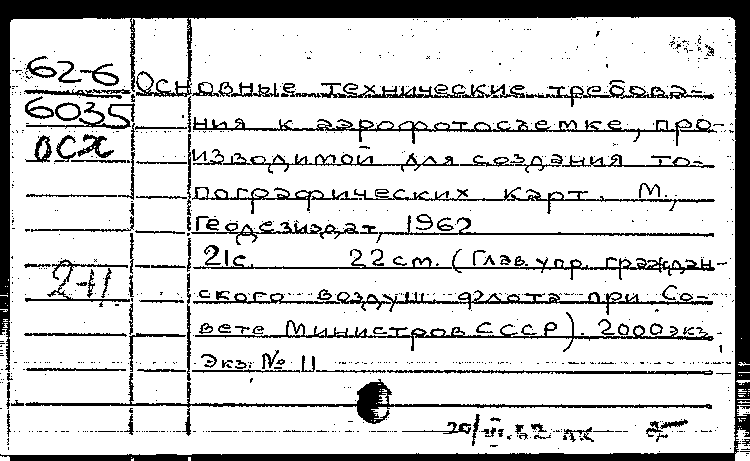 62-6
6035
ОСХ
Основные технические требова-
ния к аэрофотосъемке, про-
изводимой для создания то-
пографических карт. М.,
Геодезиздат, 1962
21с. 22см. (Глав. упр. граждан-
ского воздуш. флота при Со-
вете Министров СССР). 2000 экз.
Экз. № 11
2-11.